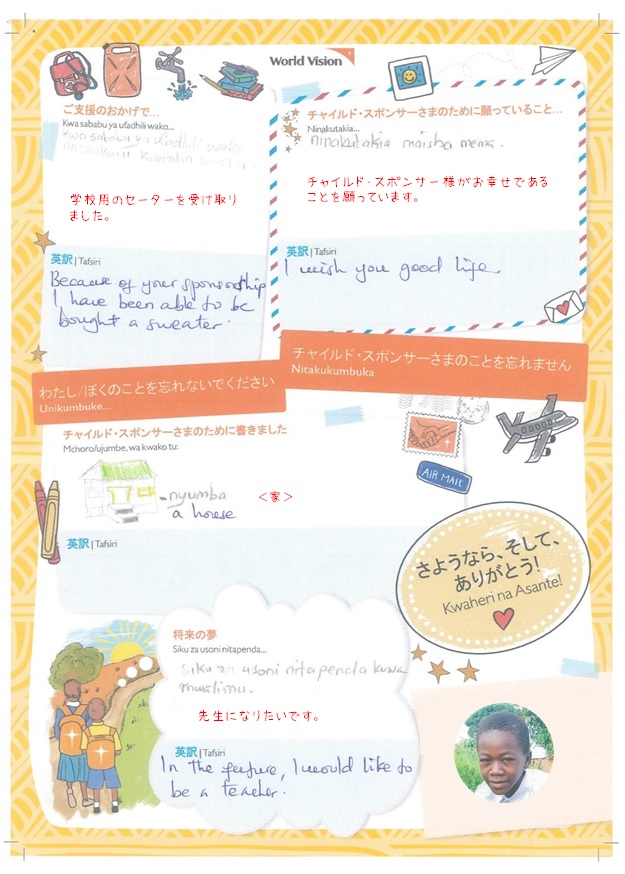 World Vision
ご支援のおかげで…
Kwa sababu ya ufadhili wako...
Kwa sababu ya ufadhili wako
学校用のセーターを受け取り
ました。
英訳 | Tafsiri
Because of your sponsorship
I have been able to be
bought a sweater.
チャイルド・スポンサーさまのために願っていること…
Ninakutakia...
ninakutakia maisha mema.
チャイルド・スポンサー様がお幸せである
ことを願っています。
英訳 | Tafsiri
I wish you good life
わたし/ぼくのことを忘れないでください
Unikumbuke...
チャイルド・スポンサーさまのことを忘れません
Nitakukumbuka
チャイルド・スポンサーさまのために書きました
Mchoro/ujumbe, wa kwako tu:
nyumba
a house
<家>
AIR MAIL
英訳 | Tafsiri
さようなら、そして、
ありがとう!
Kwaheri na Asante!
将来の夢
Siku za usoni nitapenda...
Siku za usoni nitapenda kuwa
mwalimu.
先生になりたいです。
英訳 | Tafsiri
In the future, I would like to
be a teacher.